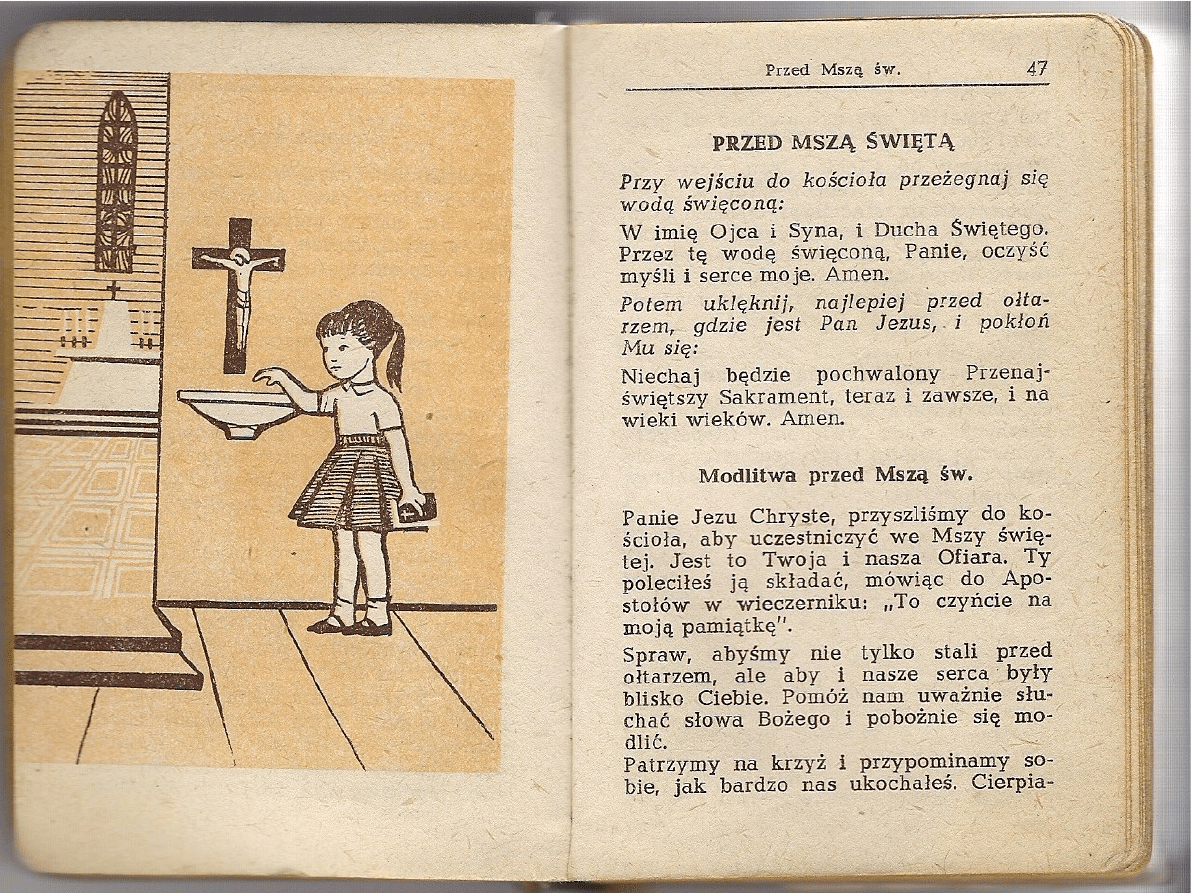 Przed Mszą św. 47
PRZED MSZĄ ŚWIĘTĄ
Przy wejściu do kościoła przeżegnaj się
wodą święconą:
W imię Ojca i Syna, i Ducha Świętego.
Przez tę wodę święconą, Panie, oczyść
myśli i serce moje. Amen.
Potem uklęknij, najlepiej przed ołta-
rzem, gdzie jest Pan Jezus, i pokłoń
Mu się:
Niechaj będzie pochwalony Przenaj-
świętszy Sakrament, teraz i zawsze, i na
wieki wieków. Amen.
Modlitwa przed Mszą św.
Panie Jezu Chryste, przyszliśmy do ko-
ścioła, aby uczestniczyć we Mszy świę-
tej. Jest to Twoja i nasza Ofiara. Ty
poleciłeś ją składać, mówiąc do Apo-
stołów w wieczerniku: „To czyńcie na
moją pamiątkę".
Spraw, abyśmy nie tylko stali przed
ołtarzem, ale aby i nasze serca były
blisko Ciebie. Pomóż nam uważnie słu-
chać słowa Bożego i pobożnie się mo-
dlić.
Patrzymy na krzyż i przypominamy so-
bie, jak bardzo nas ukochałeś. Cierpia-